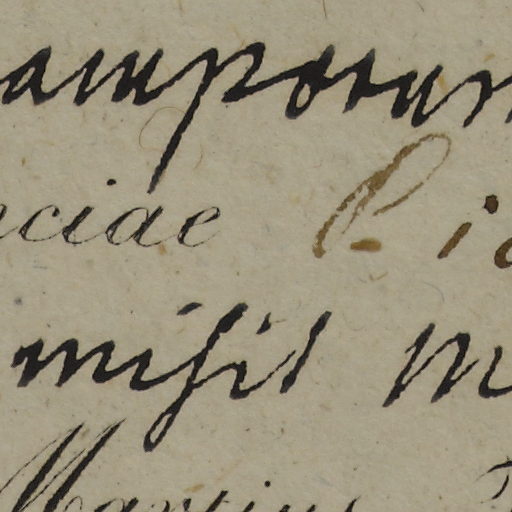 amporum
nciae l. ic
misit m
Martius